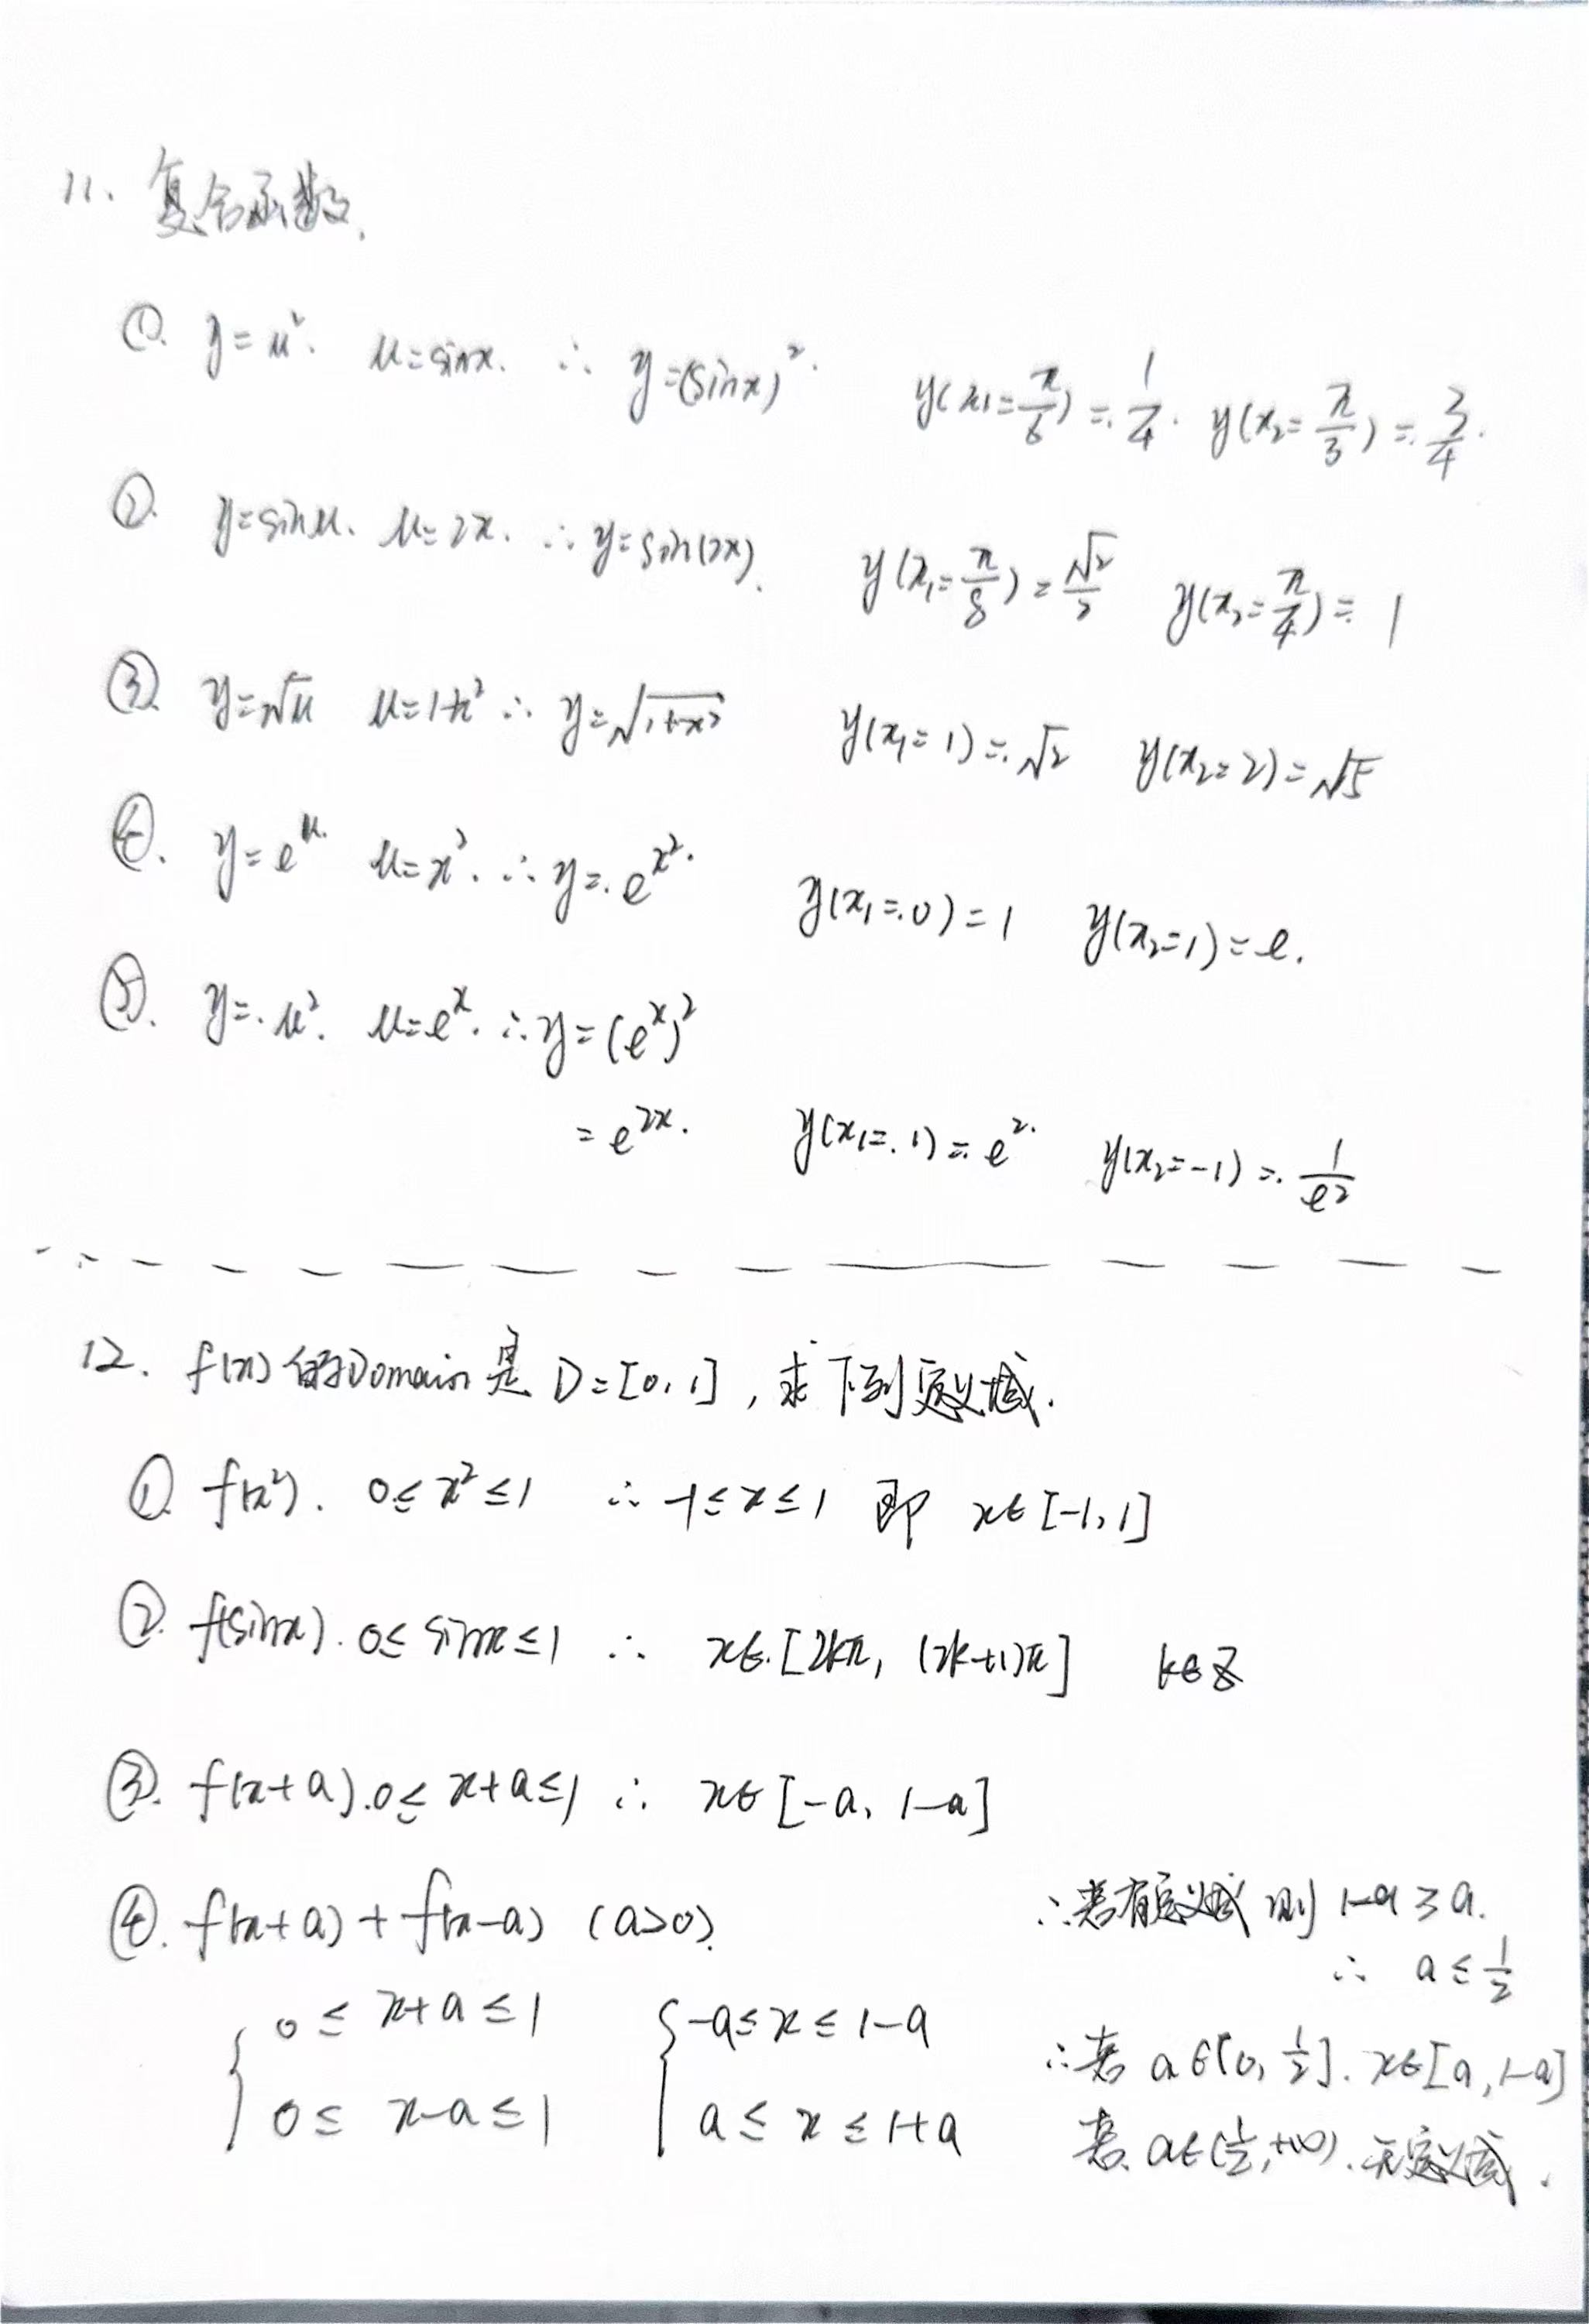 11. 复合函数.
①. y=u². u=sinx. ∴ y=(sinx)². y(x₁=π/6)=1/4. y(x₂=π/3)=3/4.
②. y=sinu. u=2x. ∴ y=sin(2x). y(x₁=π/8)=√2/2 y(x₂=π/4)=1
③. y=√u u=1+x² ∴ y=√(1+x²) y(x₁=1)=√2 y(x₂=2)=√5
④. y=eᵘ. u=x². ∴ y=e^x². y(x₁=0)=1 y(x₂=1)=e.
⑤. y=u². u=eˣ. ∴ y=(eˣ)²
=e^2x. y(x₁=1)=e². y(x₂=-1)=1/e²
12. f(x)的Domain是 D=[0,1], 求下列定义域.
①. f(x²). 0≤x²≤1 ∴ -1≤x≤1 即 x∈[-1,1]
②. f(sinx). 0≤sinx≤1 ∴ x∈[2kπ, (2k+1)π] k∈Z
③. f(x+a). 0≤x+a≤1 ∴ x∈[-a, 1-a]
④. f(x+a)+f(x-a) (a>0).
{ 0≤x+a≤1
0≤x-a≤1
{ -a≤x≤1-a
a≤x≤1+a
∴若有定义域 则 1-a≥a.
∴ a≤1/2
∴若 a∈(0, 1/2]. x∈[a, 1-a]
若. a∈(1/2, +∞). 无定义域.